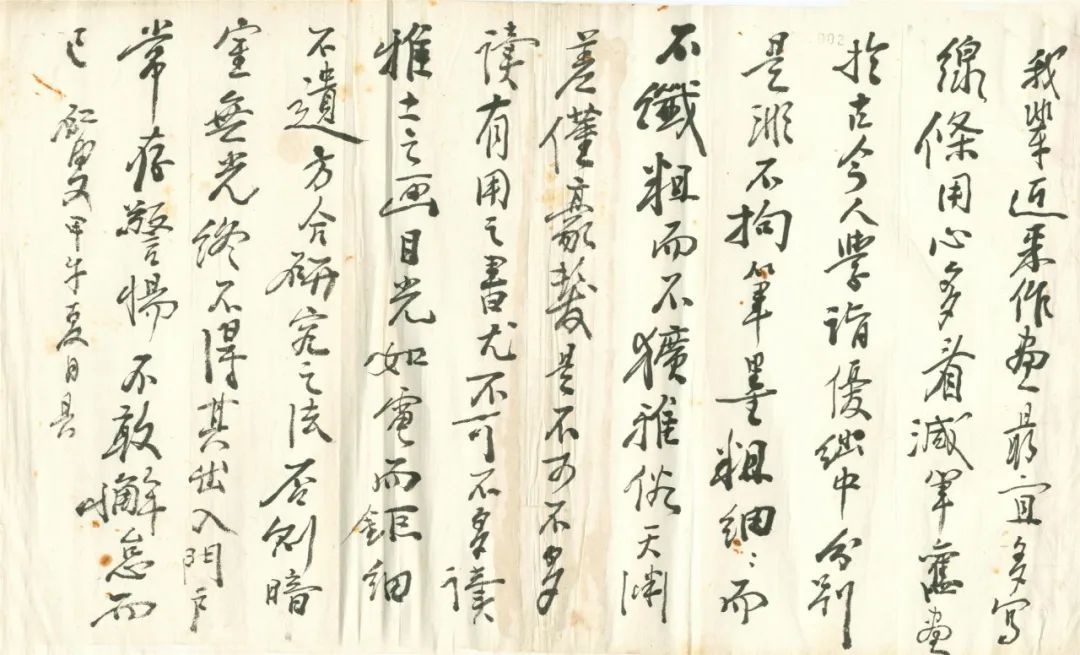 我輩近來作畫最宜多寫
線條用心多看減筆舊畫
於古今人學詣優絀中分別
是非不拘筆墨粗細:而
不纖粗而不獷雅俗天淵
差僅豪髮是不可不多
读有用之書尤不可不多读
雅士之画目光如電而鉅细
不遺方合研究之法否则暗
室無光終不得其出入門户
常存警惕不敢懈怠而
已 虹叟又甲午夏日是
002